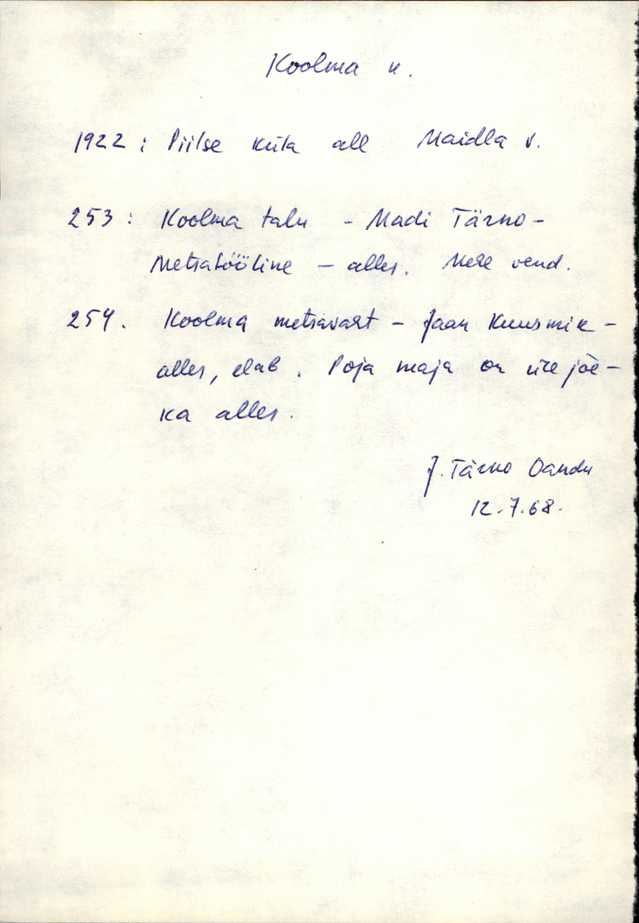 Koolma k.
1922: Piilse küla all Maidla v.
253: Koolma talu - Madi Tärno -
Metsatööline - alles. Mere vend.
254. Koolma metsavaht - Jaan Kuusmik -
alles, elab. Poja maja on üle jõe -
ka alles.
J. Tärno Oandu
12.7.68.